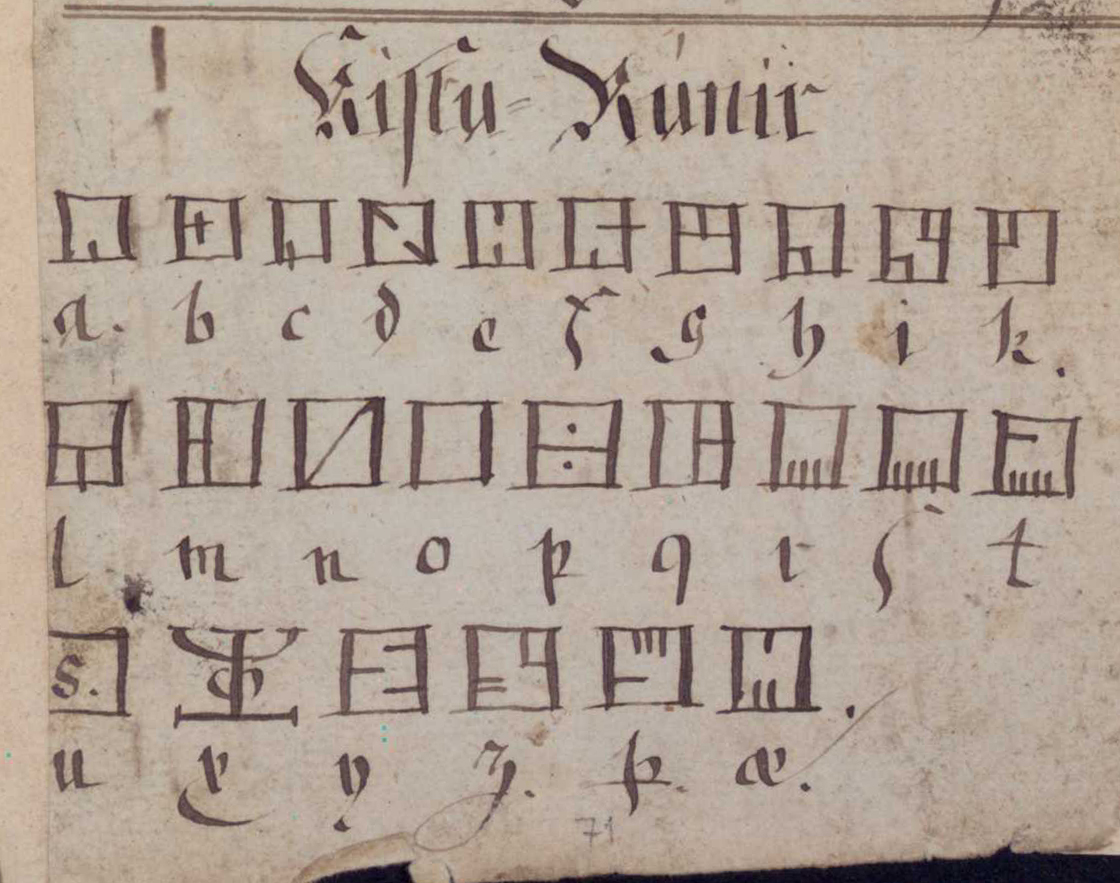 Kistu-Rúnir
a. b c d e f g h i k.
l m n o p q r ſ t
s.
u x y z. þ. æ.
71